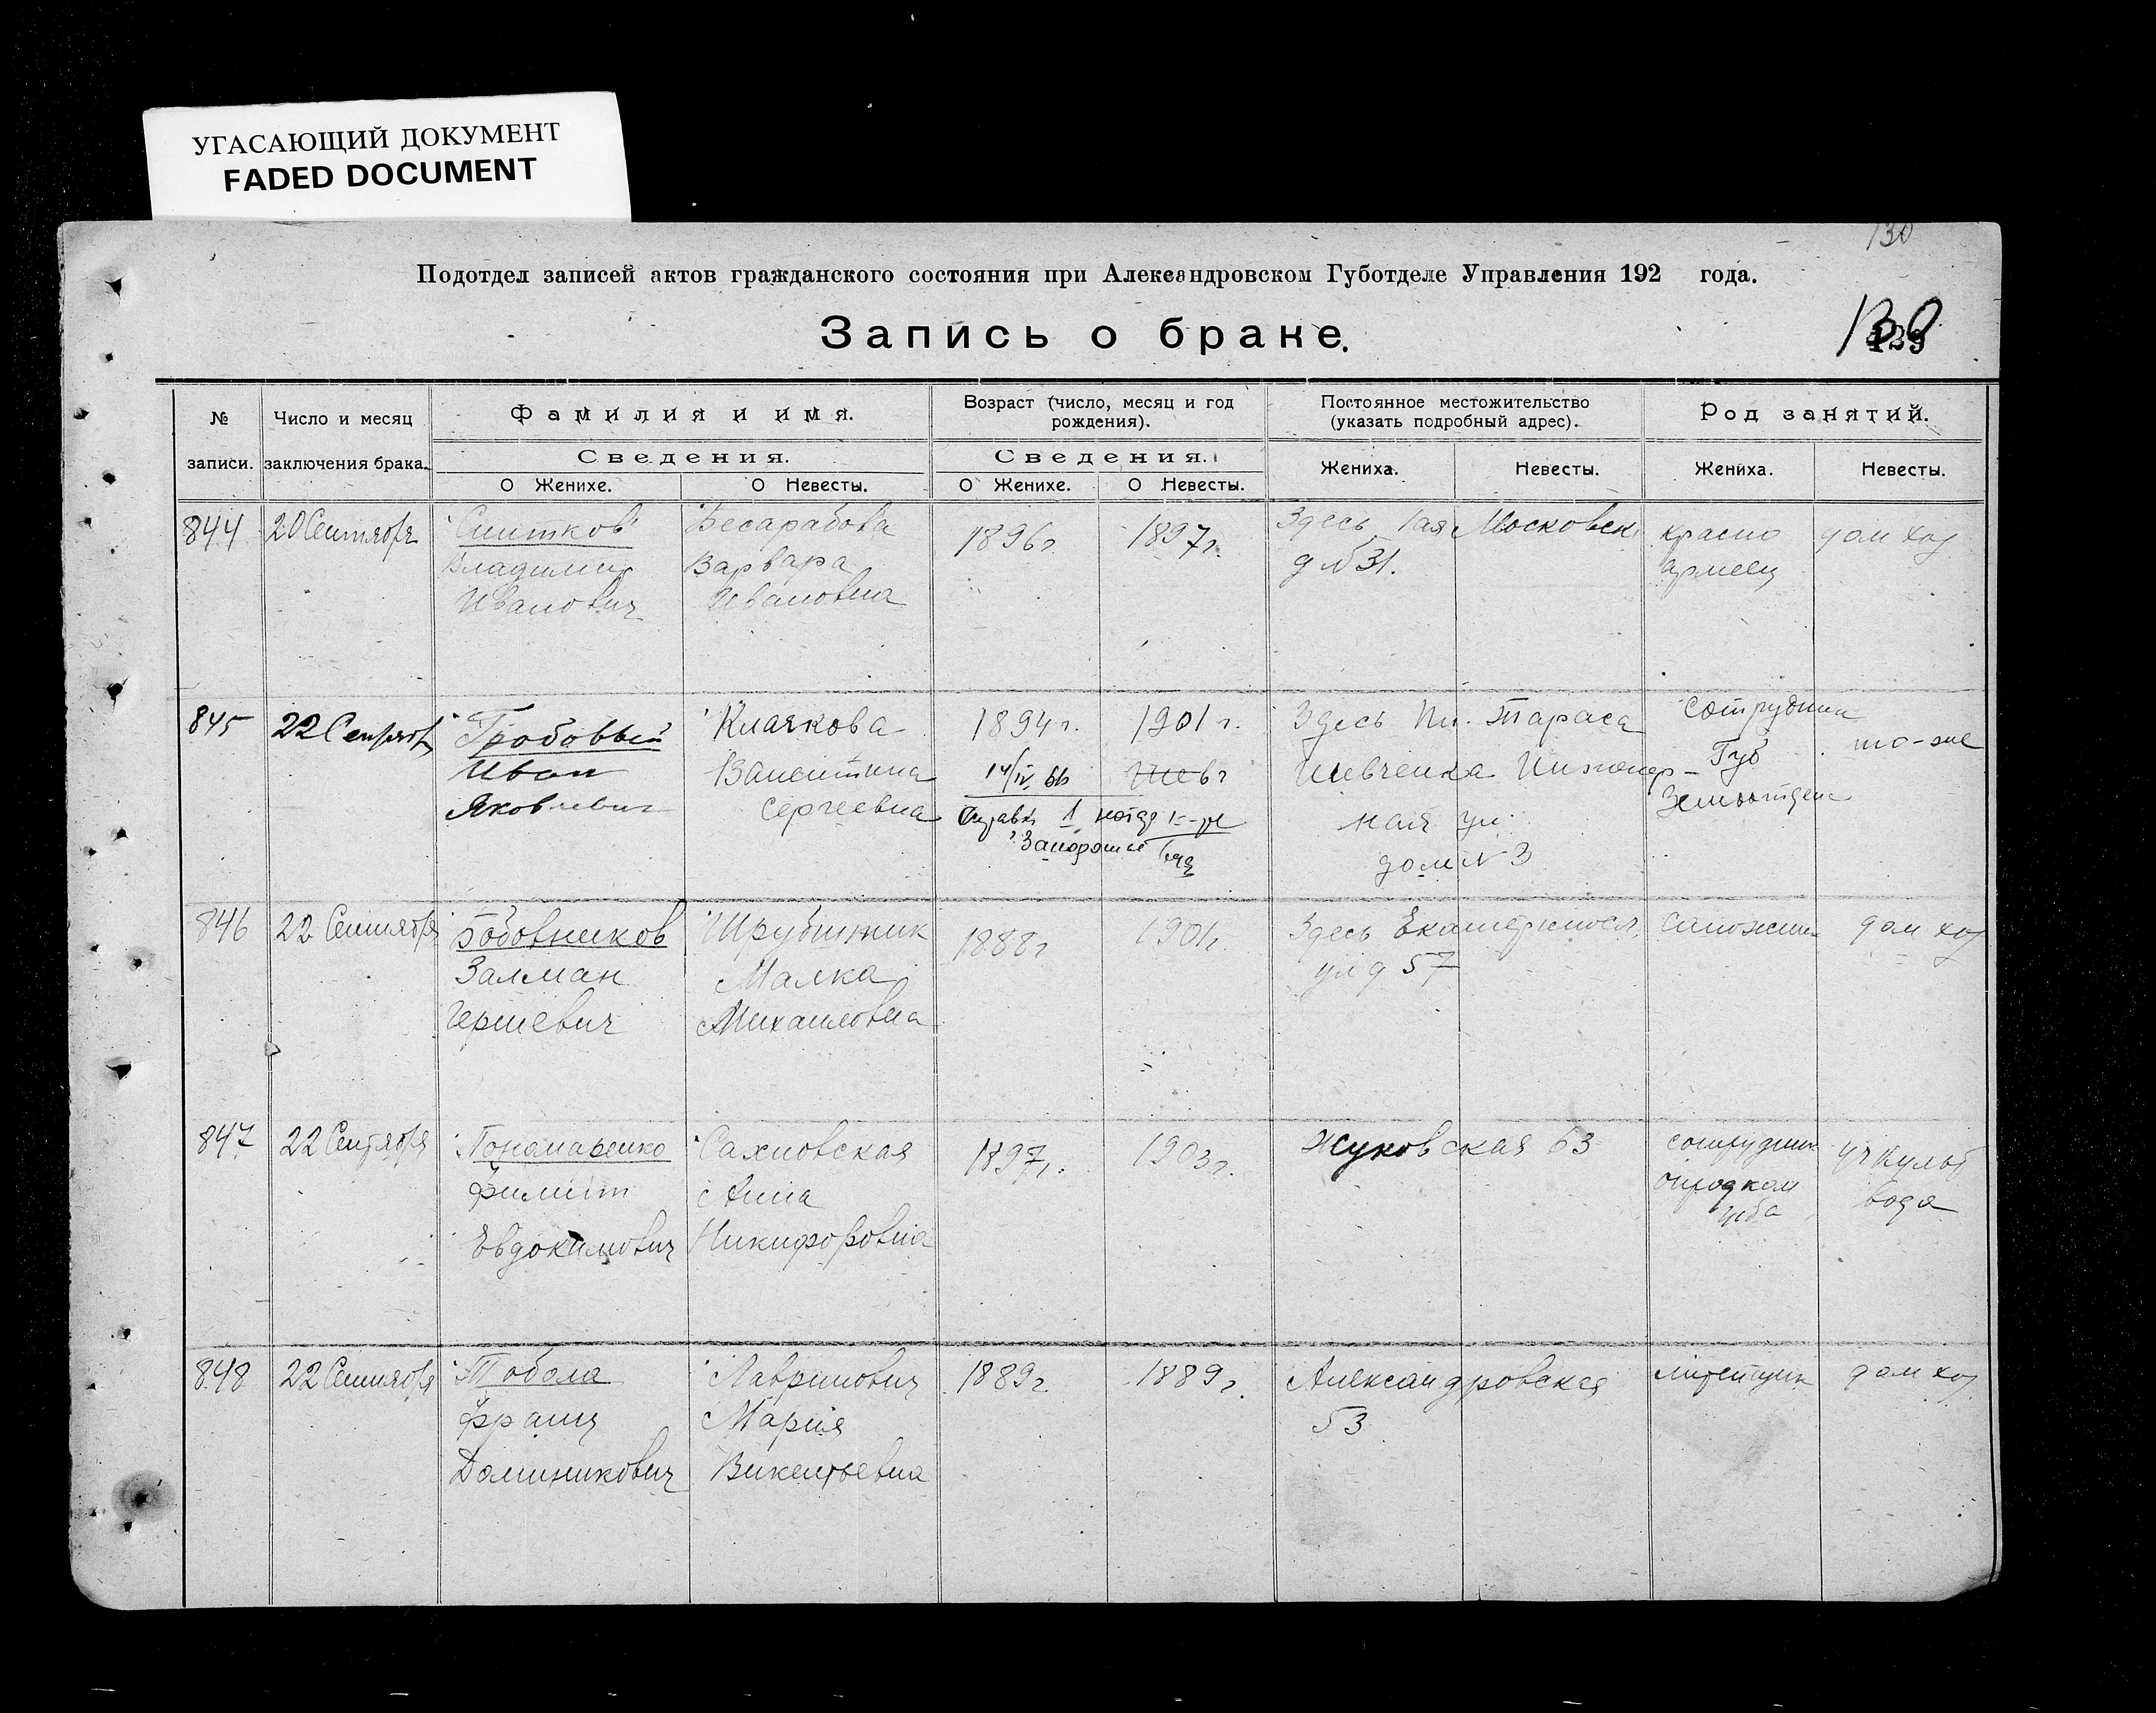 УГАСАЮЩИЙ ДОКУМЕНТ
FADED DOCUMENT
130
Подотдел записей актов гражданского состояния при Александровском Губотделе Управления 192 года.
Запись о браке.
130
№ записи.
Число и месяц заключения брака.
Фамилия и имя.
Сведения.
О Женихе.
О Невесты.
Возраст (число, месяц и год рождения).
Сведения.
О Женихе.
О Невесты.
Постоянное местожительство (указать подробный адрес).
Жениха.
Невесты.
Род занятий.
Жениха.
Невесты.
844
20 Сентября
Снитков
Владимир
Иванович
Бесарабова
Варвара
Ивановна
1896г.
1897г.
Здесь 1ая Московск.
д № 31.
красно
армеец
дом хоз
845
22 Сентяб
Гробовый
Иван
Яковлевич
Клачкова
Валентина
Сергеевна
1894 г.
1901 г.
Здесь Тараса
Шевченка Инженер-
ная ул.
дом № 3
Сотрудник
Губ
Земотдела
то-же
846
22 Сентября
Бобовников
Залман
Гершевич
Шрубштик
Малка
Михаиловна
1888г
1901г.
Здесь Екатериносл.
ул д 57
Сапожник
дом хоз
847
22 Сентября
Пономаренко
Филипп
Евдокимович
Сахновская
Анна
Никифоровна
1897г.
1903г.
Жуковская 63
сотрудник
Опродком
культ
вода
848
22 Сентября
Тобола
Франц
Доминикович
Лавринович
Мария
Викентьевна
1889г.
1889г.
Александровская
53
литейщик
дом хоз